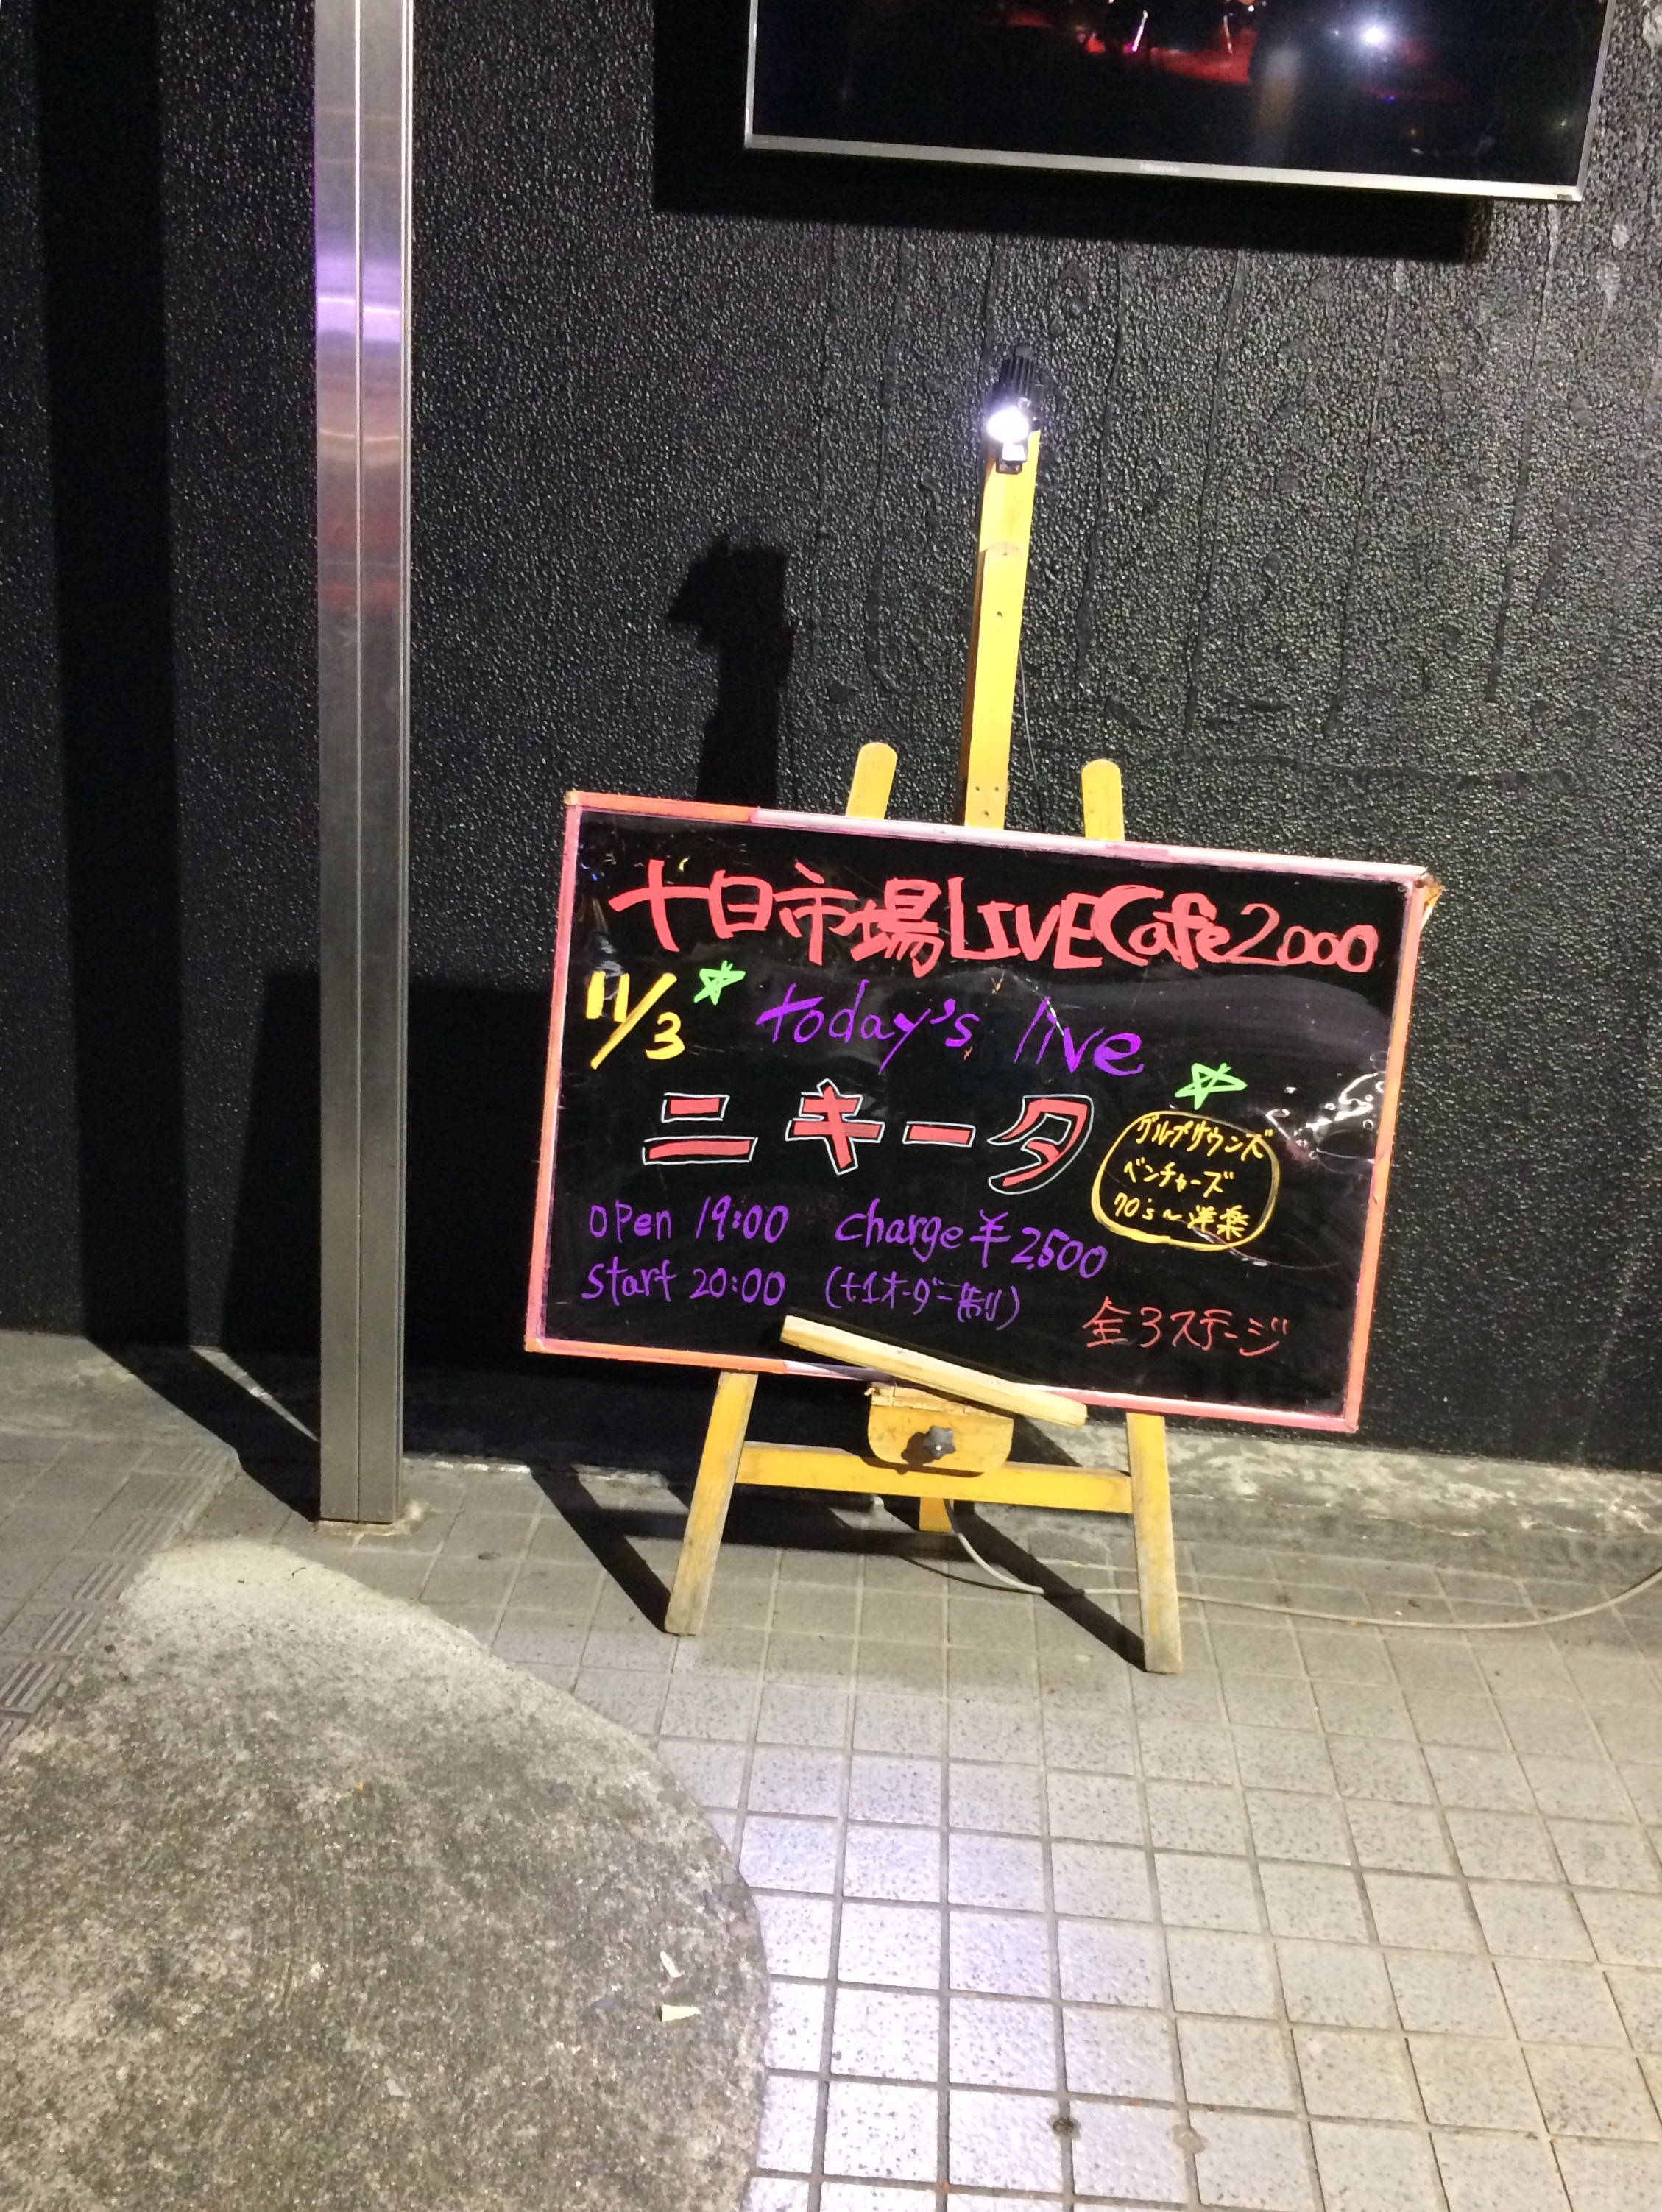 Hisense
十日市場LIVECafe2000
11/3 today's live
ニキータ
グループサウンズ
ベンチャーズ
70's～洋楽
open 19:00 charge¥2,500
start 20:00 (+1オーダー制)
全3ステージ